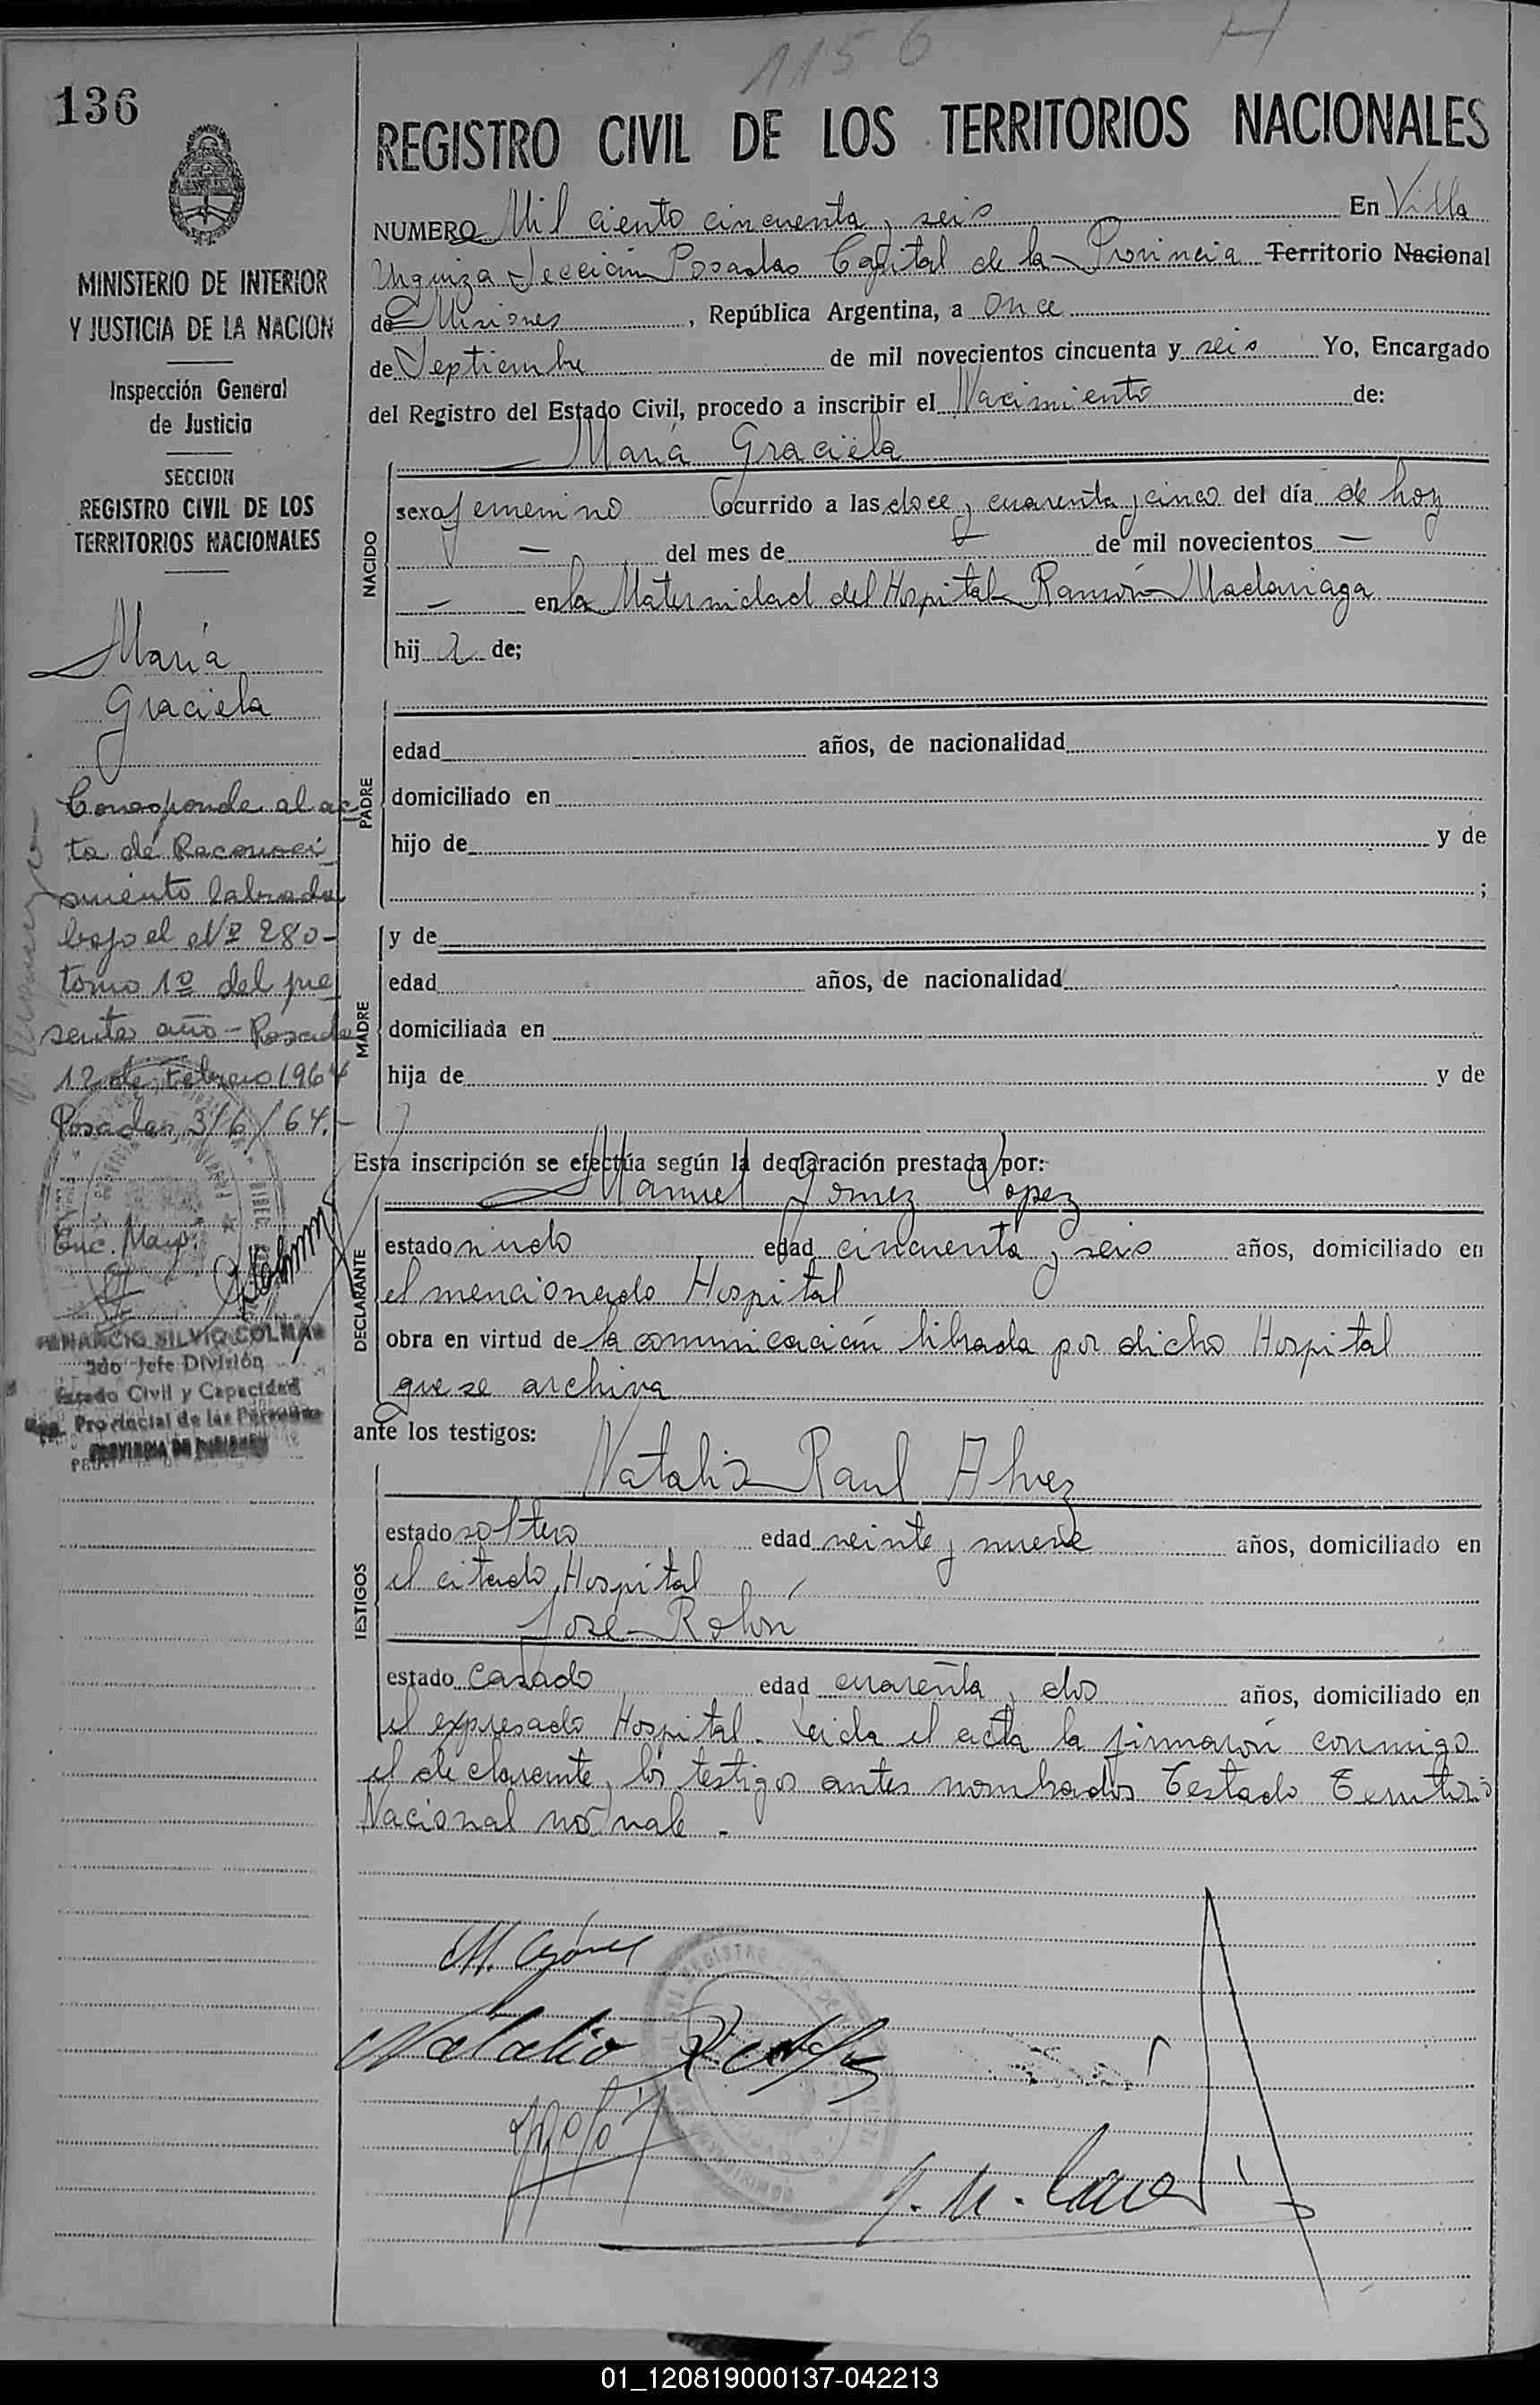 1156
136
MINISTERIO DE INTERIOR
Y JUSTICIA DE LA NACION
Inspección General
de Justicia
SECCION
REGISTRO CIVIL DE LOS
TERRITORIOS NACIONALES
María
Graciela
Corresponde al ac-
ta de Reconoci
miento labrada
bajo el Nº 280-
tomo 1º del pre
sente año - Posadas
12 de Febrero 1964
Posadas, 3/6/64.-
Enc. Mayo.
SILVIO COLMAN
2do Jefe División
Estado Civil y Capacidad
Provincial de las Personas
PROVINCIA DE MISIONES
REGISTRO CIVIL DE LOS TERRITORIOS NACIONALES
NUMERO Mil ciento cincuenta y seis En Villa
Urquiza Sección Posadas Capital de la Provincia Territorio Nacional
de Misiones, República Argentina, a once
de Septiembre de mil novecientos cincuenta y seis Yo, Encargado
del Registro del Estado Civil, procedo a inscribir el Nacimiento de:
María Graciela
NACIDO
sexo femenino ocurrido a las doce y cuarenta y cinco del día de hoy
— del mes de — de mil novecientos —
— en la Maternidad del Hospital Ramón Madariaga
hij a de;
PADRE
edad años, de nacionalidad
domiciliado en
hijo de y de
;
MADRE
y de
edad años, de nacionalidad
domiciliada en
hija de y de
Esta inscripción se efectúa según la declaración prestada por:
Manuel Gomez Lopez
DECLARANTE
estado viudo edad cincuenta y seis años, domiciliado en
el mencionado Hospital
obra en virtud de la comunicación librada por dicho Hospital
que se archiva
ante los testigos:
TESTIGOS
Natalio Raul Alvez
estado soltero edad veinte y nueve años, domiciliado en
el citado Hospital
José Rolón
estado casado edad cuarenta y dos años, domiciliado en
el expresado Hospital. Leida el acta la firmaron conmigo
el declarante y los testigos antes nombrados Testado Territorio
Nacional no vale -
M. Gómez
Natalio
01_120819000137-042213